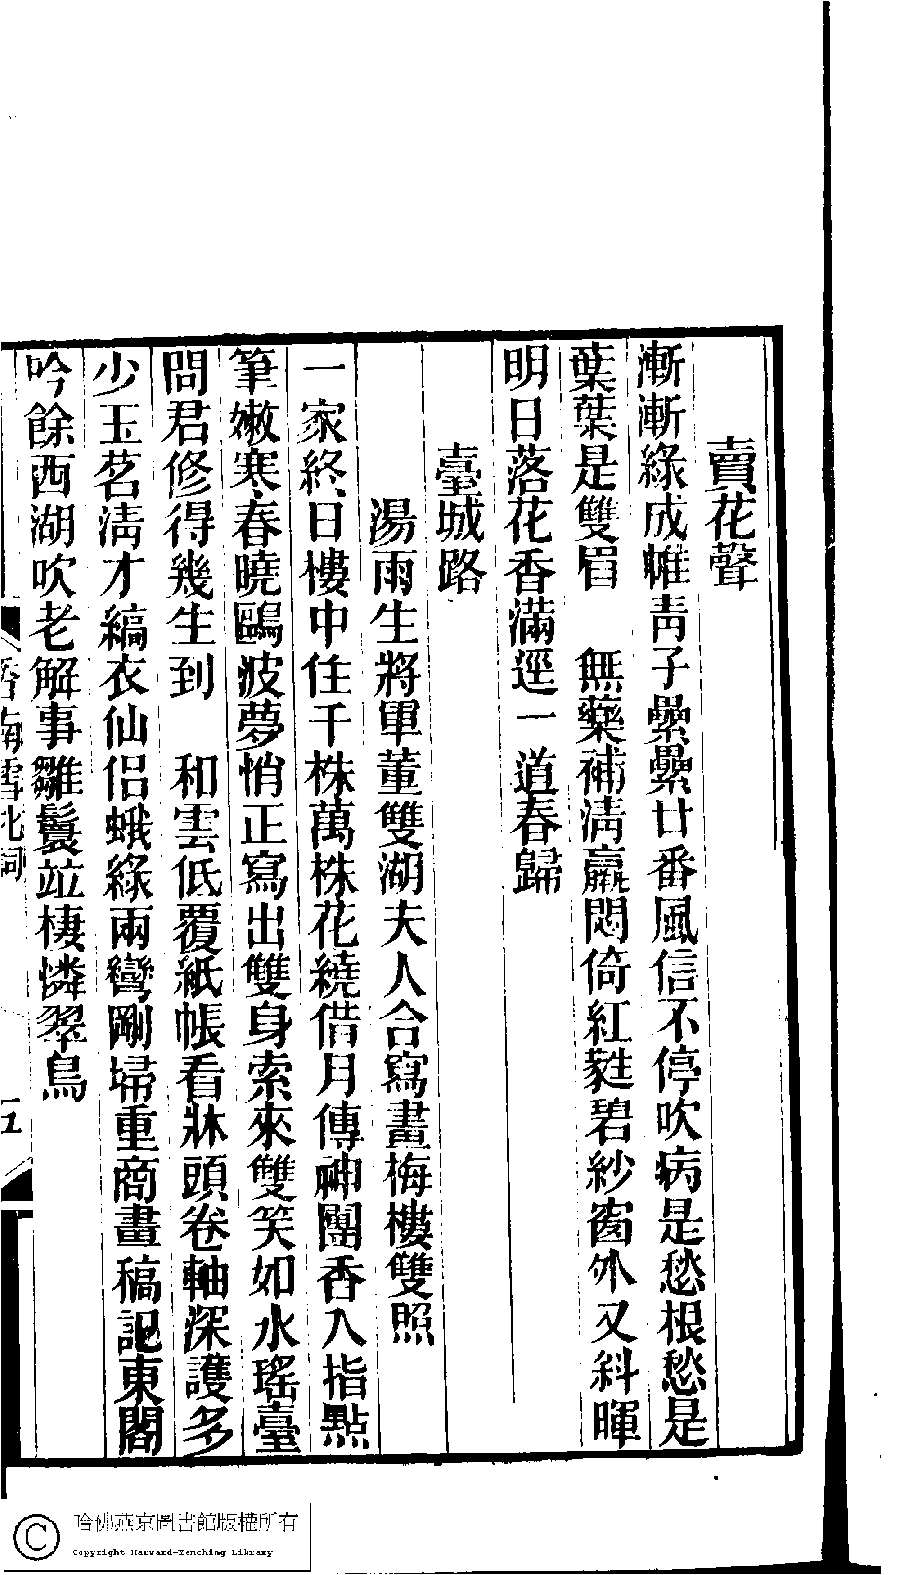 賣花聲
漸漸綠成帷青子纍纍廿番風信不停吹病是愁根愁是
葉葉是雙眉　無藥補淸羸悶倚紅㽔碧紗窗外又斜暉
明日落花香滿逕一道春歸
臺城路
湯雨生將軍董雙湖夫人合寫畫梅樓雙照
一家終日樓中住千株萬株花繞借月傳神團香入指點
筆嫩寒春曉鷗波夢悄正寫出雙身索來雙笑如水瑤臺
問君修得幾生到　和雲低覆紙帳看牀頭卷軸深護多
少玉茗淸才縞衣仙侶蛾綠兩彎剛埽重商畫稿記東閣
吟餘西湖吹老解事雛鬟竝棲憐翠鳥
香南雪北詞
五
哈佛燕京圖書館版權所有
Copyright Harvard-Yenching Library